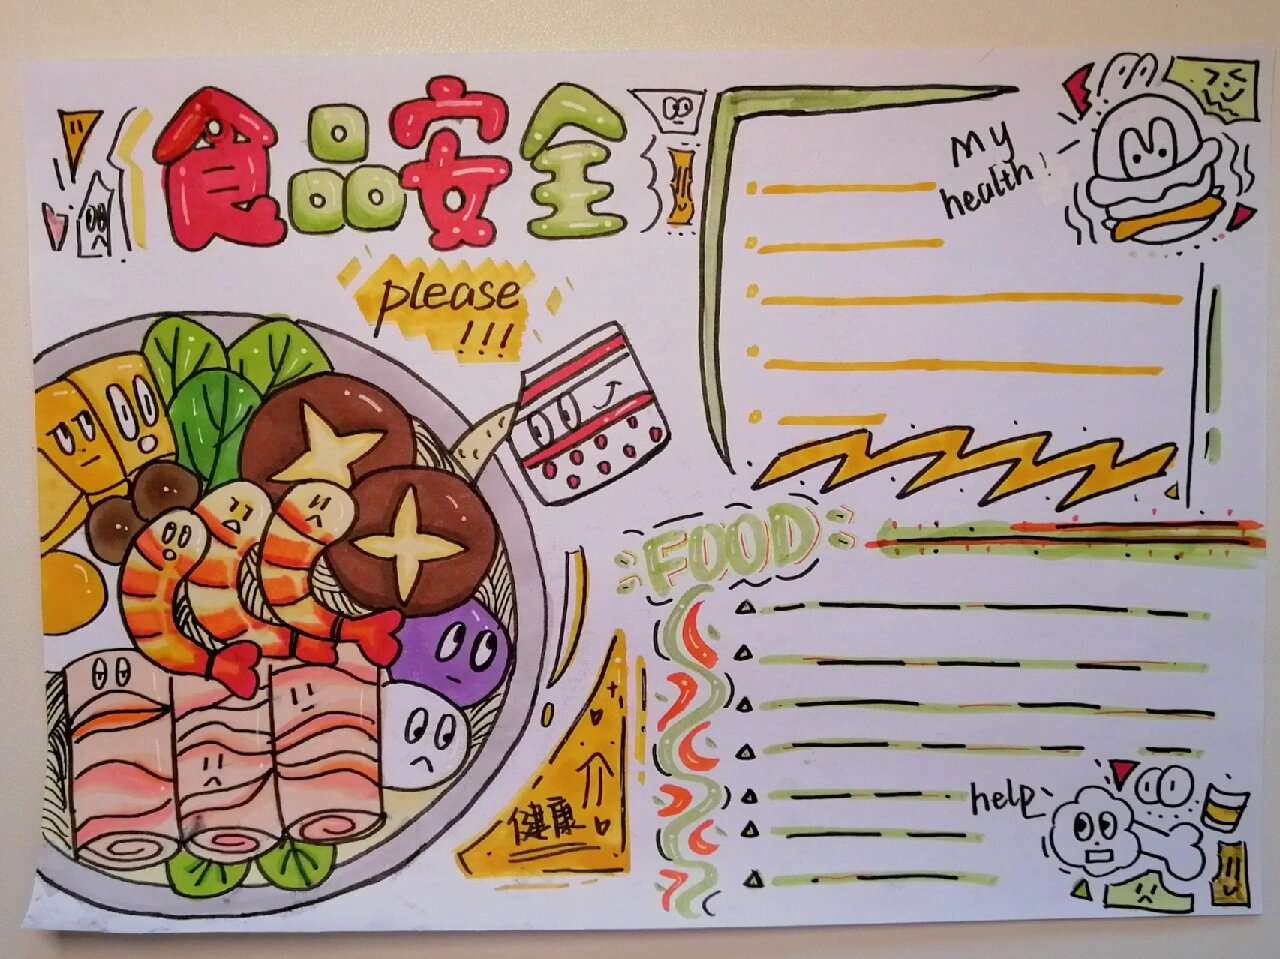 食品安全
please
!!!
My
health!
FOOD
健康
help